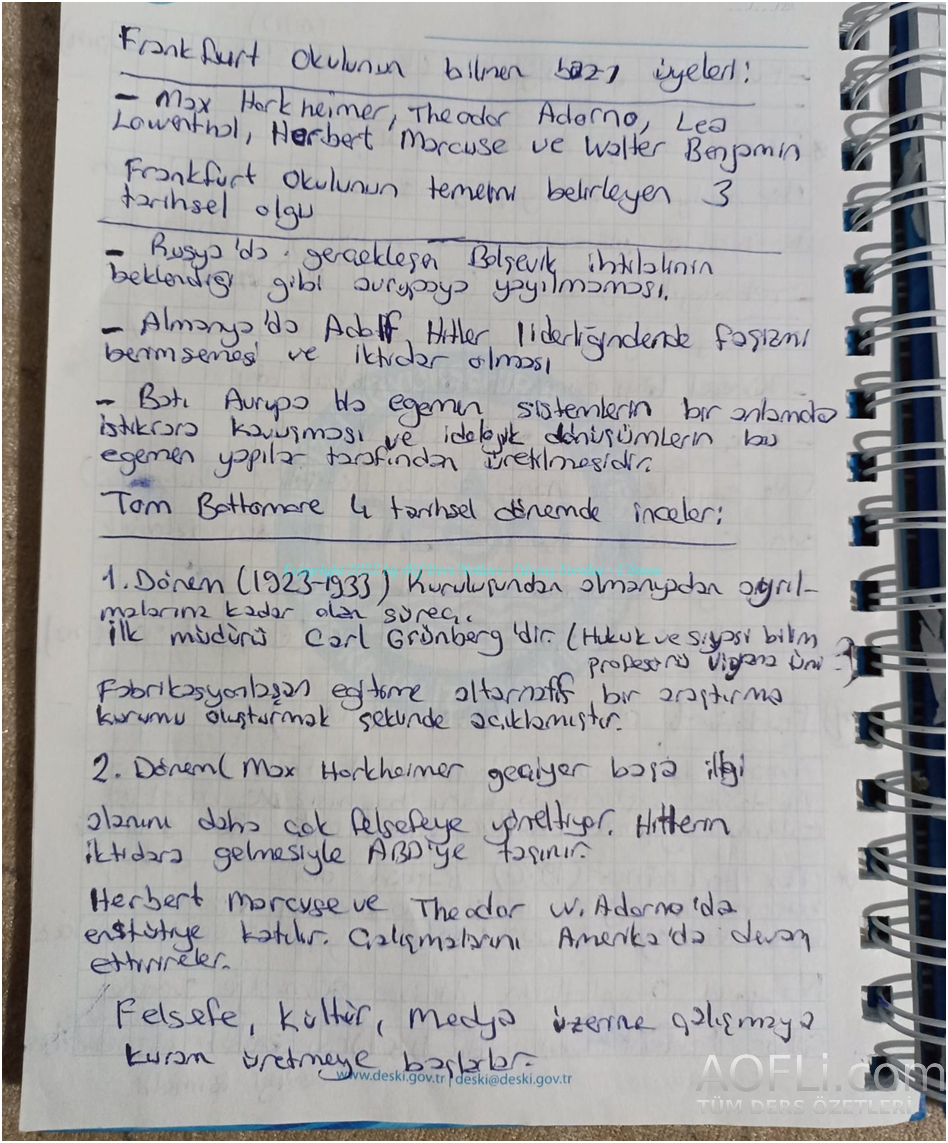 Frankfurt Okulunun bilinen bazı üyeleri:
- Max Horkheimer, Theodor Adorno, Leo
Lowenthal, Herbert Marcuse ve Walter Benjamin
Frankfurt Okulunun temelini belirleyen 3
tarihsel olgu
- Rusya'da gerçekleşen Bolşevik ihtilalinin
beklendiği gibi avrupaya yayılmaması.
- Almanya'da Adolf Hitler liderliğindende faşizmi
benimsemesi ve iktidar olması
- Batı Avrupa'da egemen sistemlerin bir anlamda
istikrara kavuşması ve ideolojik dönüşümlerin bu
egemen yapılar tarafından üretilmesidir.
Tom Bottomore 4 tarihsel dönemde inceler:
1. Dönem (1923-1933) Kuruluşundan almanyadan ayrıl-
malarına kadar olan süreç.
İlk müdürü Carl Grünberg'dir. (Hukuk ve siyasi bilim
profesörü Viyana Üni.)
Fabrikasyonlaşan eğitime alternatif bir araştırma
kurumu oluşturmak şeklinde açıklamıştır.
2. Dönem( Max Horkheimer geçiyor başa ilgi
alanını daha çok felsefeye yöneltiyor. Hitlerin
iktidara gelmesiyle ABD'ye taşınır.
Herbert Marcuse ve Theodor W. Adorno'da
enstütiye katılır. Çalışmalarını Amerika'da devam
ettirirler.
Felsefe, Kültür, Medya üzerine çalışmaya
kuram üretmeye başlarlar.
www.deski.gov.tr | deski@deski.gov.tr
AOFLi.com
TÜM DERS ÖZETLERİ